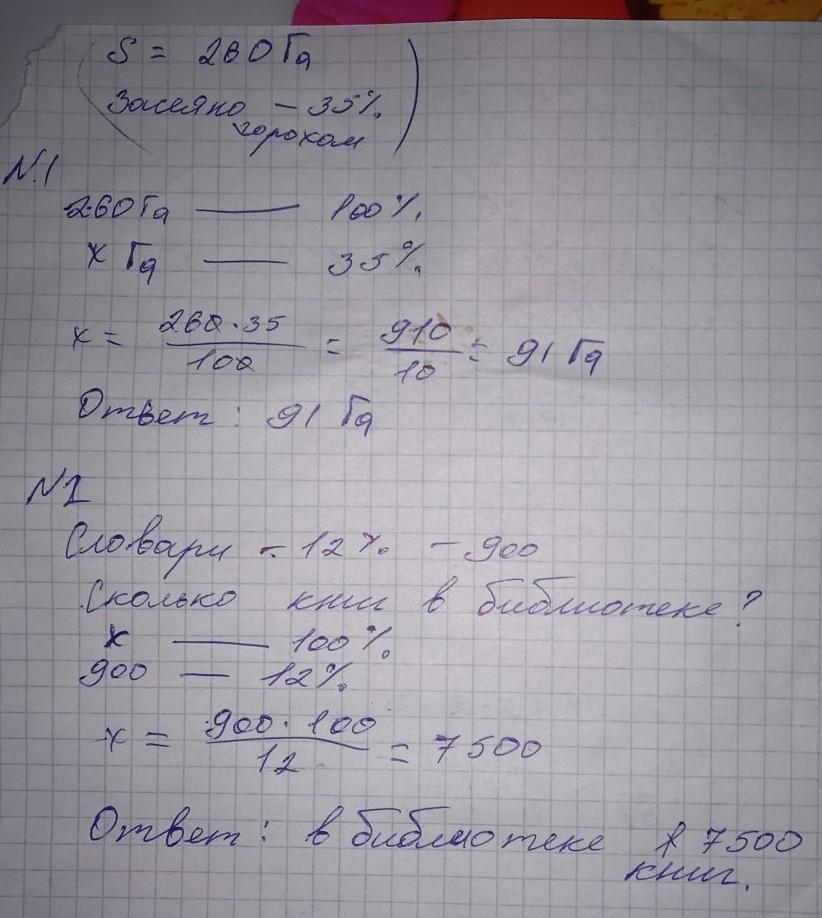 S = 260 Га
Засеяно - 35%
горохом
N.1
260 Га — 100%
x Га — 35%
x = 260·35 / 100 = 910 / 10 = 91 Га
Ответ: 91 Га
N2
Словари - 12% - 900
Сколько книг в библиотеке?
x — 100%
900 — 12%
x = 900·100 / 12 = 7500
Ответ: в библиотеке 7500
книг.